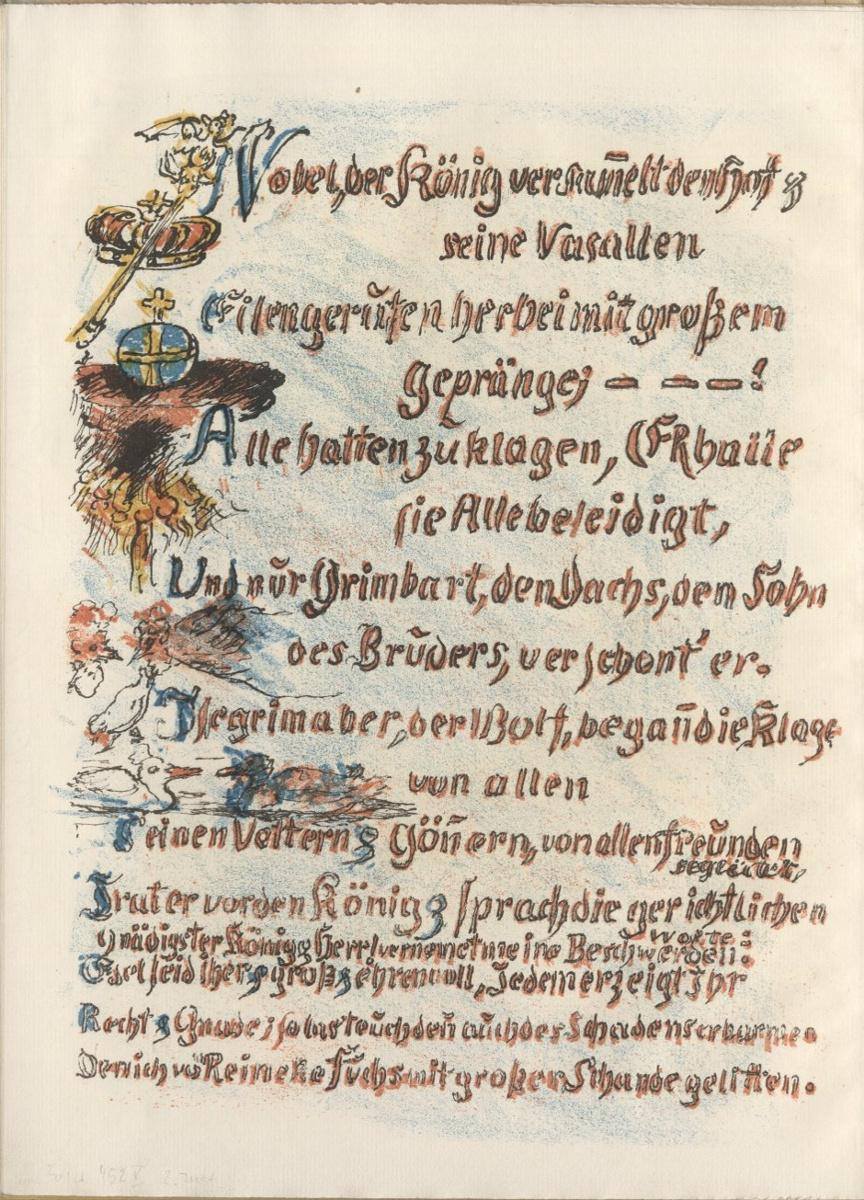 Nobel, der König versam̄elt den Hof &
seine Vasallen
Eilen gerufen herbei mit großem
Gepränge; – – – – !
Alle hatten zu klagen, Er hatte
sie Alle beleidigt,
Und nur Grimbart, den Dachs, den Sohn
des Bruders, verschont' er.
Isegrim aber, der Wolf, began̄ die Klage
von allen
seinen Vettern & Gön̄ern, von allen freunden
begleitet,
Trat er vor den König & sprach die gerichtlichen
Worte:
Gnädigster König & Herr! vernemet meine Beschwerden:
Edel seid ihr & groß & ehrenvoll, Jedem erzeigt Ihr
Recht & Gnade; so last euch den̄ auch des Schadens erbarmen
Den ich vō Reineke Fuchs mit großer Schande gelitten.